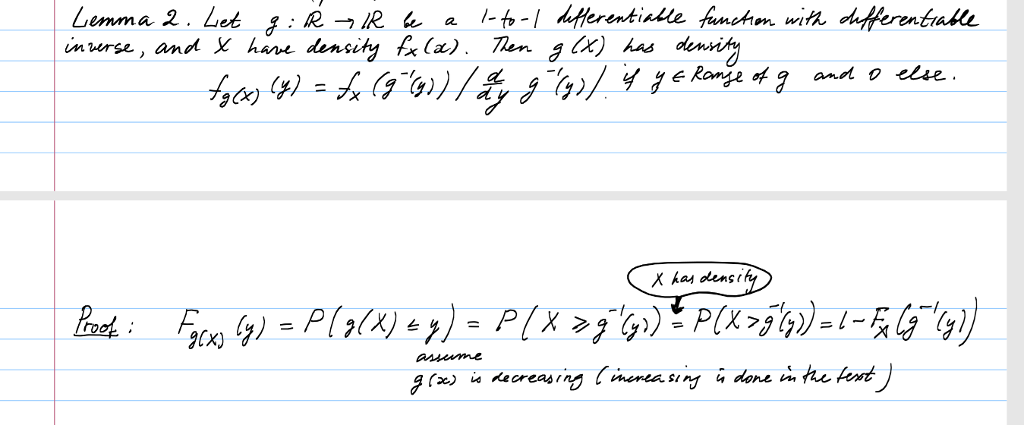 Lemma 2. Let g : ℝ → ℝ be a 1-to-1 differentiable function with differentiable
inverse, and X have density f_X(x). Then g(X) has density
f_{g(X)}(y) = f_X(g⁻¹(y)) |d/dy g⁻¹(y)| if y ∈ Range of g and 0 else.
X has density
Proof : F_{g(X)}(y) = P(g(X) ≤ y) = P(X ≥ g⁻¹(y)) = P(X > g⁻¹(y)) = 1 - F_X(g⁻¹(y))
assume
g(x) is decreasing (increasing is done in the text)